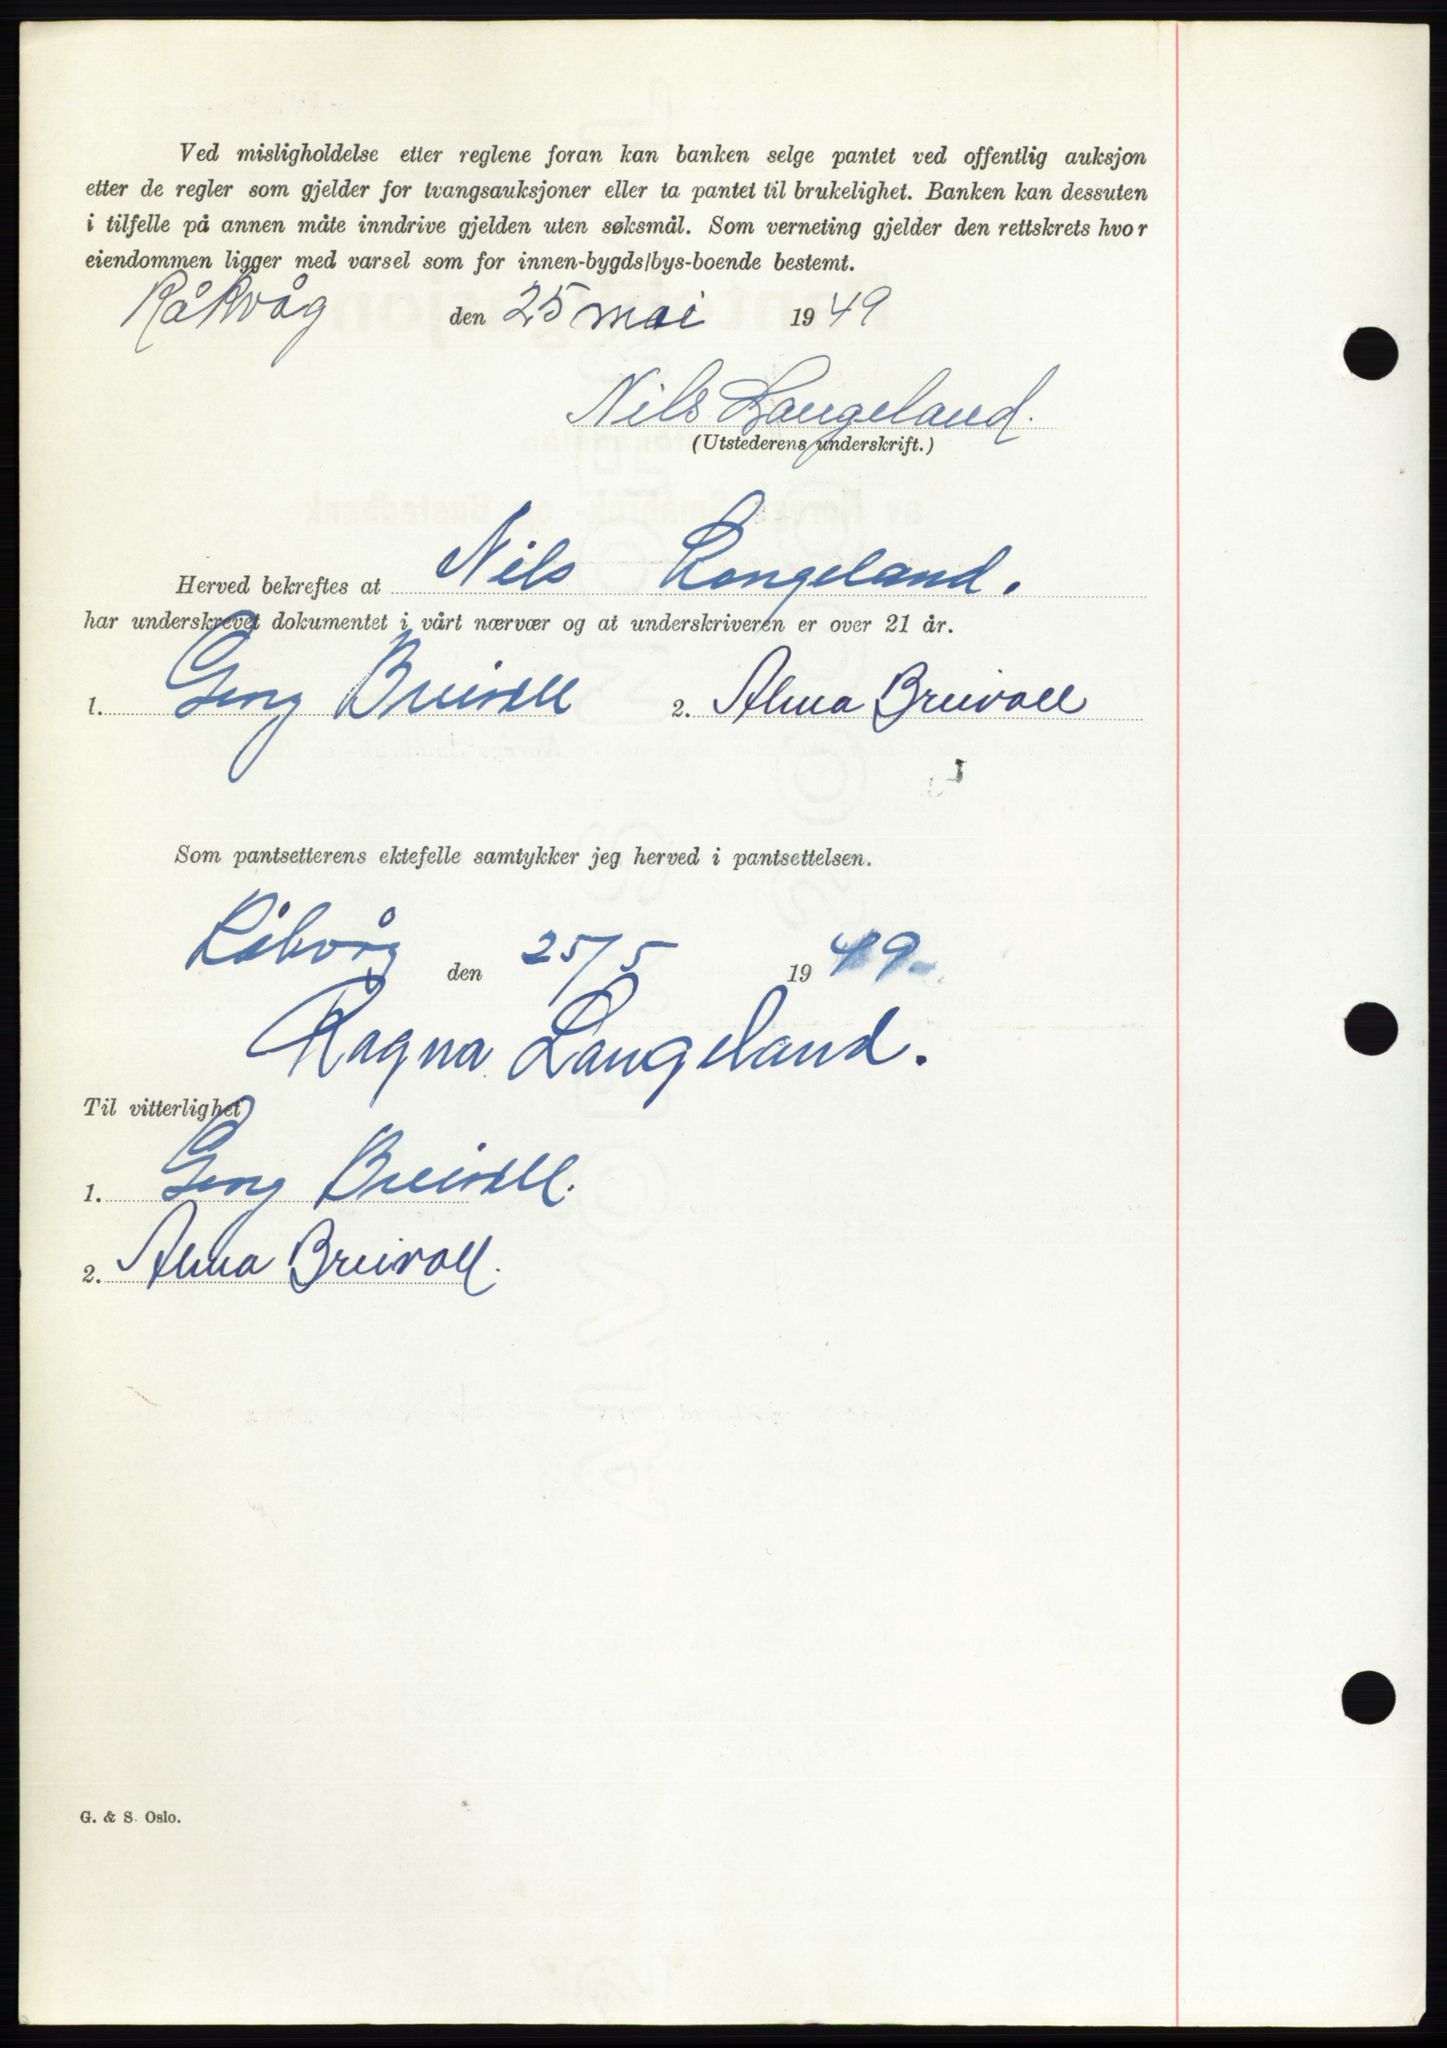 Ved misligholdelse etter reglene foran kan banken selge pantet ved offentlig auksjon
etter de regler som gjelder for tvangsauksjoner eller ta pantet til brukelighet. Banken kan dessuten
i tilfelle på annen måte inndrive gjelden uten søksmål. Som verneting gjelder den rettskrets hvor
eiendommen ligger med varsel som for innen-bygds/bys-boende bestemt.
Råkvåg den 25 mai 1949
Nils Langeland.
(Utstederens underskrift.)
Herved bekreftes at Nils Langeland.
har underskrevet dokumentet i vårt nærvær og at underskriveren er over 21 år.
1. Georg Breivoll 2. Alma Breivoll
Som pantsetterens ektefelle samtykker jeg herved i pantsettelsen.
Råkvåg den 25/5 1949
Ragna Langeland.
Til vitterlighet
1. Georg Breivoll.
2. Alma Breivoll.
G. & S. Oslo.